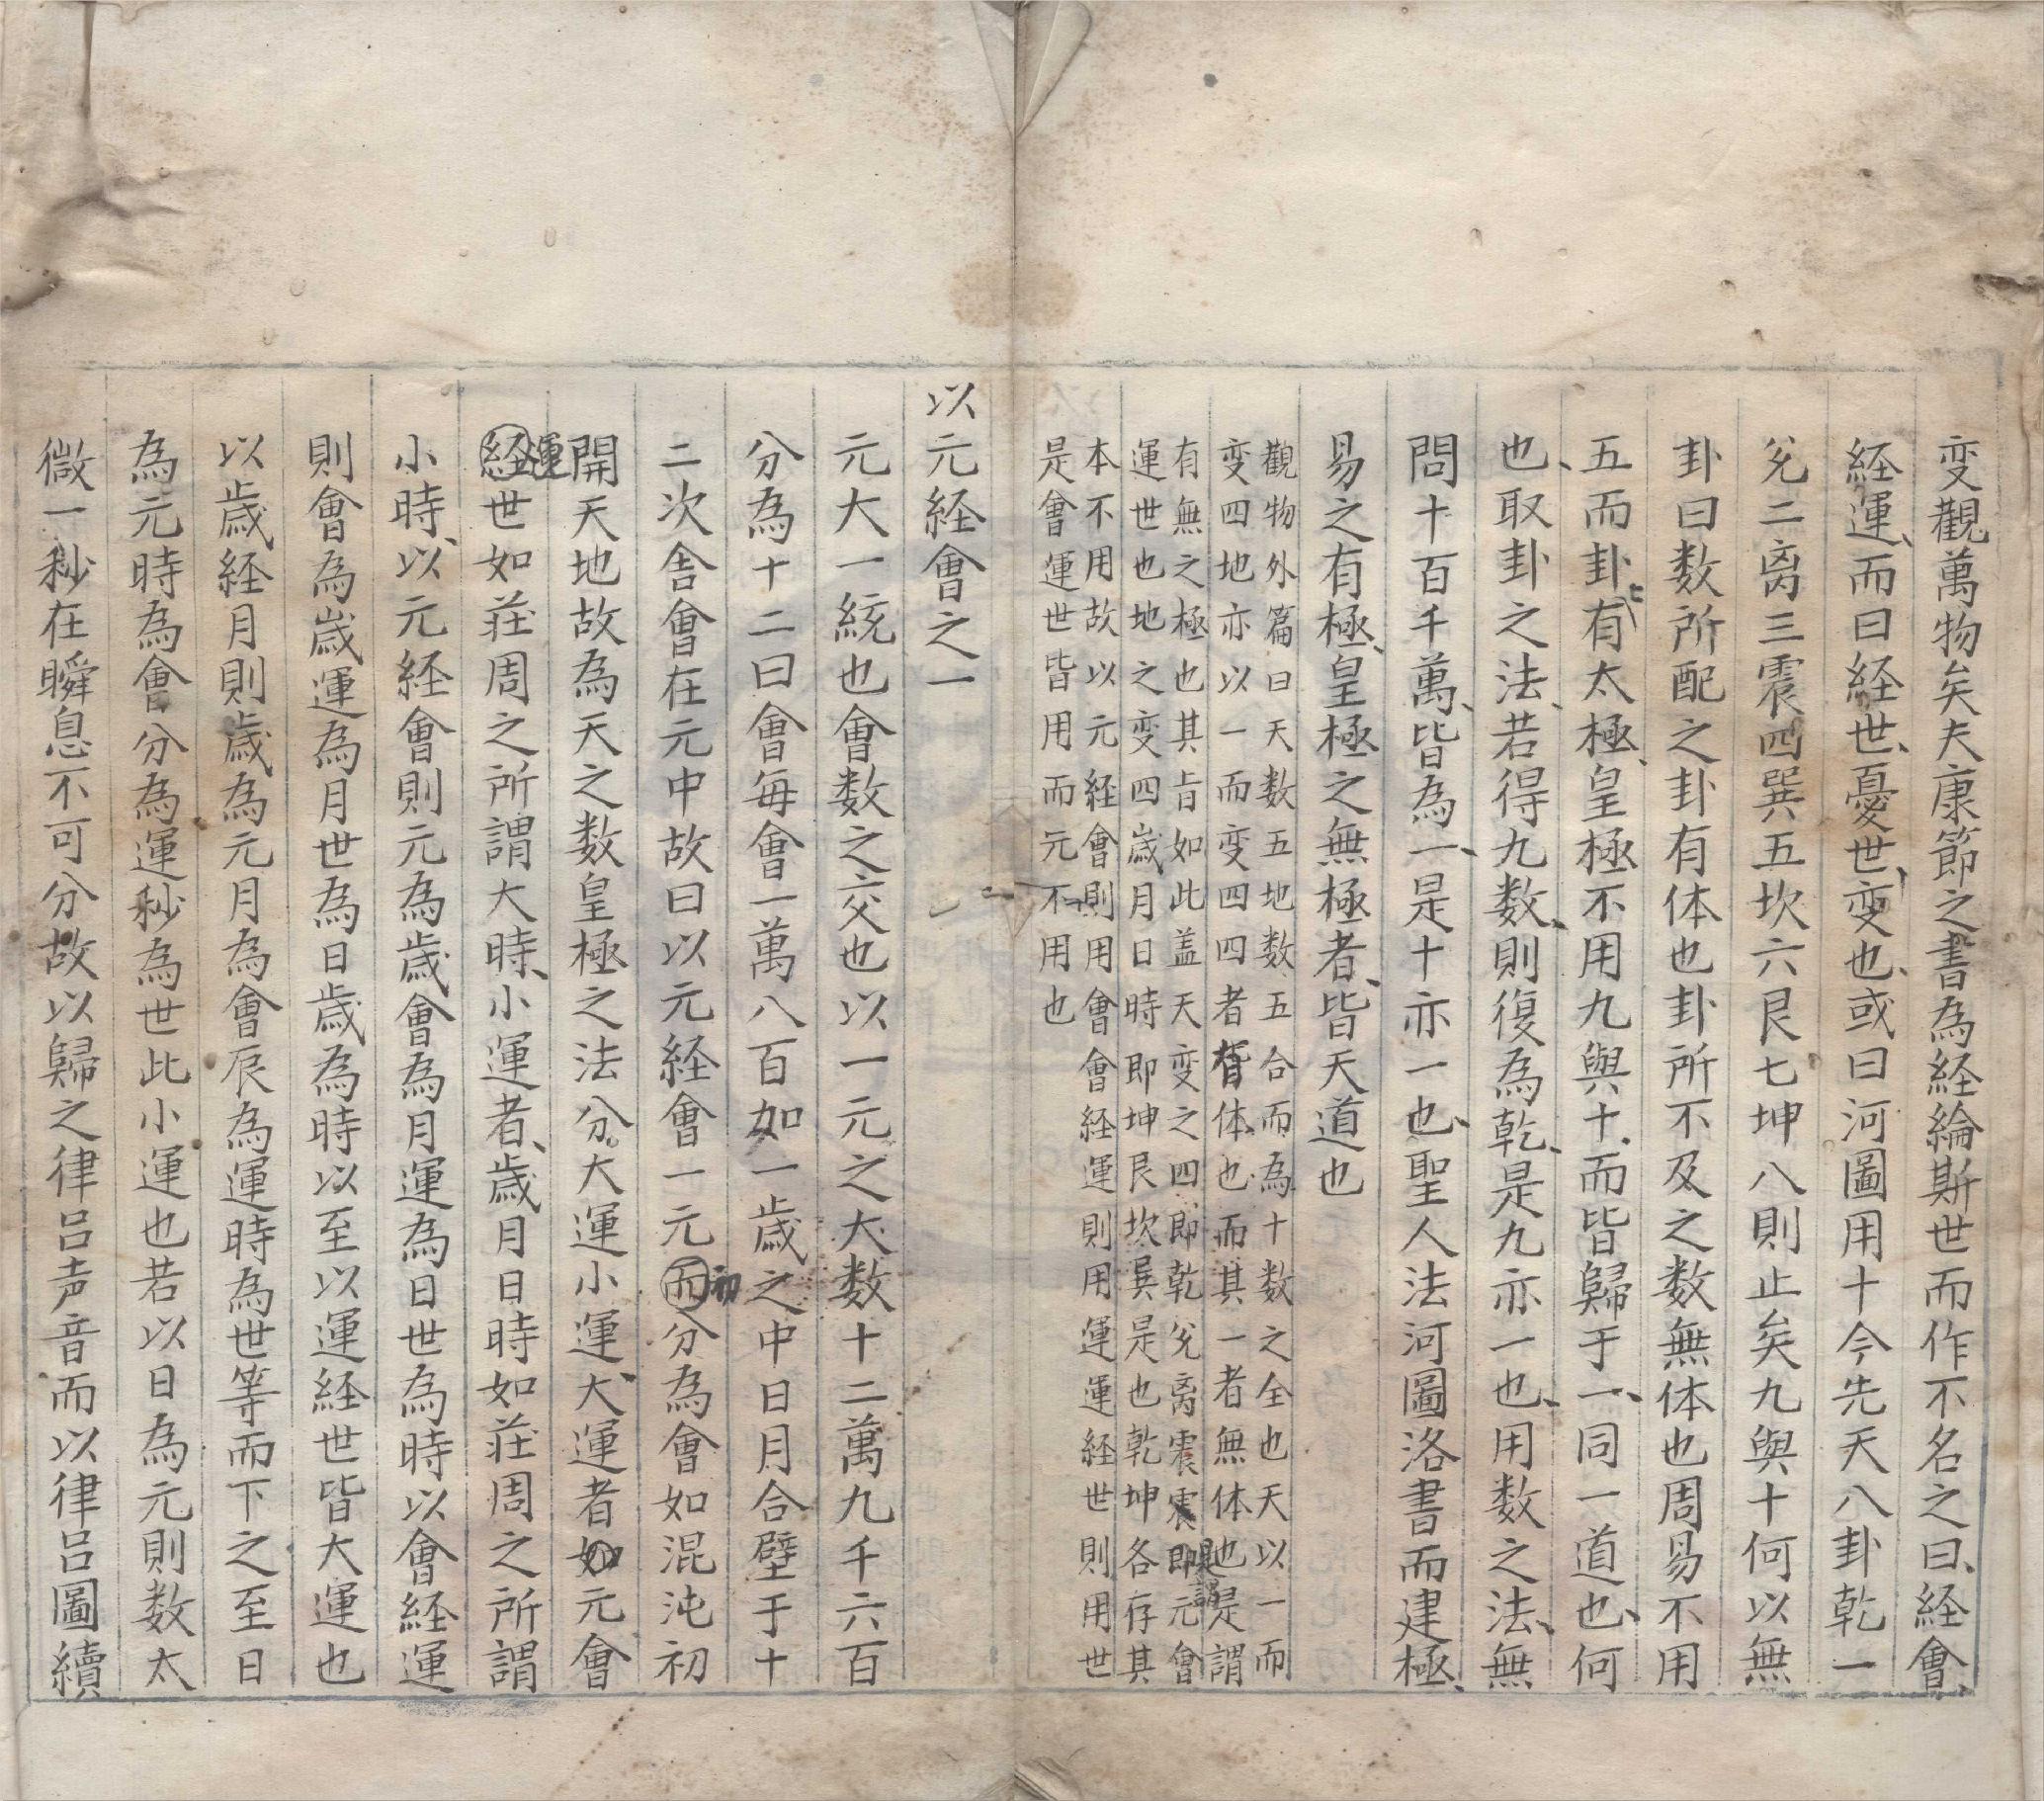 变觀萬物矣夫康節之書為経綸斯世而作不名之曰経會
経運而曰経世憂世变也或曰河圖用十今先天八卦乾一
兊二离三震四巽五坎六艮七坤八則止矣九與十何以無
卦曰数所配之卦有体也卦所不及之数無体也周易不用
五而卦有太極皇極不用九與十而皆歸于一同一道也何
也取卦之法若得九数則復為乾是九亦一也用数之法無
問十百千萬皆為一是十亦一也聖人法河圖洛書而建極
易之有極皇極之無極者皆天道也
觀物外篇曰天数五地数五合而為十数之全也天以一而
变四地亦以一而变四四者皆体也而其一者無体也是謂
有無之極也其旨如此盖天变之四即乾兊离震震即元會
運世也地之变四歲月日時即坤艮坎巽是也乾坤各存其
本不用故以元経會則用會會経運則用運運経世則用世
是會運世皆用而元不用也
以元経會之一
元大一統也會数之交也以一元之大数十二萬九千六百
分為十二曰會每會一萬八百如一歲之中日月合壁于十
二次舍會在元中故曰以元経會一元而初分為會如混沌初
開天地故為天之数皇極之法分大運小運大運者如元會
経運世如莊周之所謂大時小運者歲月日時如莊周之所謂
小時以元経會則元為歲會為月運為日世為時以會経運
則會為歲運為月世為日歲為時以至以運経世皆大運也
以歲経月則歲為元月為會辰為運時為世等而下之至日
為元時為會分為運秒為世此小運也若以日為元則数太
微一秒在瞬息不可分故以歸之律呂声音而以律呂圖續